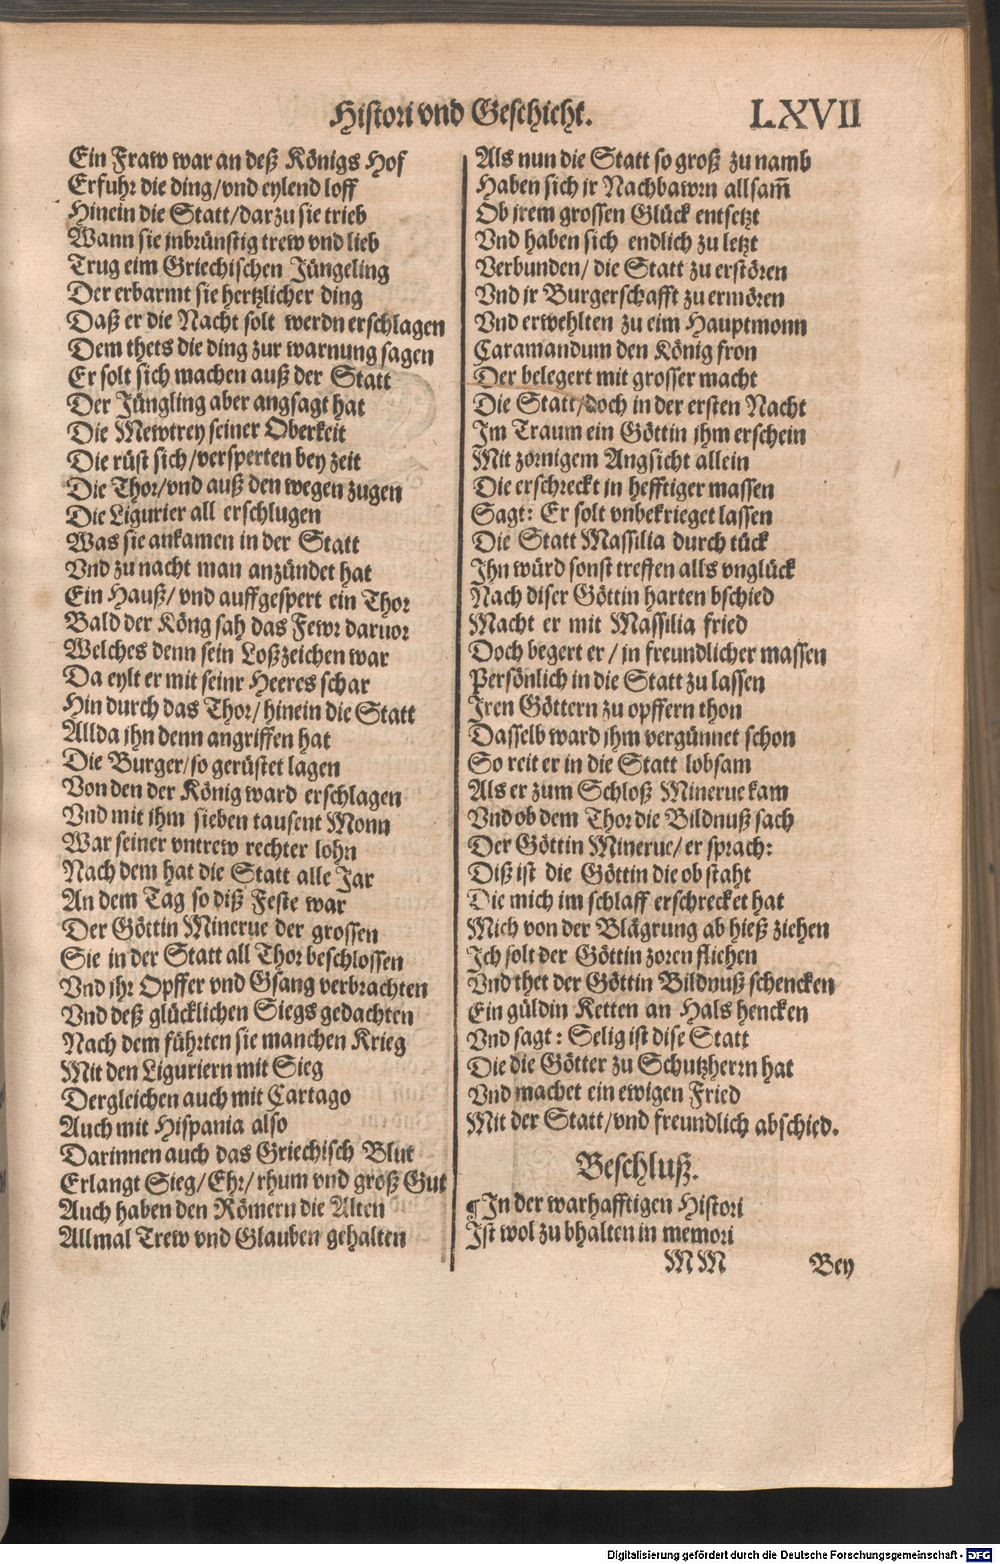 Histori vnd Geschicht. LXVII
Ein Fraw war an deß Königs Hof
Erfuhr die ding/vnd eylend loff
Hinein die Statt/darzu sie trieb
Wann sie jnbrünstig trew vnd lieb
Trug eim Griechischen Jüngeling
Der erbarmt sie hertzlicher ding
Daß er die Nacht solt werdn erschlagen
Dem thets die ding zur warnung sagen
Er solt sich machen auß der Statt
Der Jüngling aber angsagt hat
Die Mewtrey seiner Oberkeit
Die rüst sich/versperten bey zeit
Die Thor/vnd auß den wegen zugen
Die Ligurier all erschlugen
Was sie ankamen in der Statt
Vnd zu nacht man anzündet hat
Ein Hauß/vnd auffgespert ein Thor
Bald der Köng sah das Fewr daruor
Welches denn sein Loßzeichen war
Da eylt er mit seinr Heeres schar
Hin durch das Thor/hinein die Statt
Allda jhn denn angriffen hat
Die Burger/so gerüstet lagen
Von den der König ward erschlagen
Vnd mit jhm sieben tausent Monn
War seiner vntrew rechter lohn
Nach dem hat die Statt alle Jar
An dem Tag so diß Feste war
Der Göttin Minerue der grossen
Sie in der Statt all Thor beschlossen
Vnd jhr Opffer vnd Gsang verbrachten
Vnd deß glücklichen Siegs gedachten
Nach dem führten sie manchen Krieg
Mit den Liguriern mit Sieg
Dergleichen auch mit Cartago
Auch mit Hispania also
Darinnen auch das Griechisch Blut
Erlangt Sieg/Ehr/rhum vnd groß Gut
Auch haben den Römern die Alten
Allmal Trew vnd Glauben gehalten
Als nun die Statt so groß zu namb
Haben sich jr Nachbawrn allsam̃
Ob jrem grossen Glück entsetzt
Vnd haben sich endlich zu letzt
Verbunden/die Statt zu erstören
Vnd jr Burgerschafft zu ermören
Vnd erwehlten zu eim Hauptmonn
Caramandum den König fron
Der belegert mit grosser macht
Die Statt/doch in der ersten Nacht
Im Traum ein Göttin jhm erschein
Mit zornigem Angsicht allein
Die erschreckt in hefftiger massen
Sagt: Er solt vnbekrieget lassen
Die Statt Massilia durch tück
Ihn würd sonst treffen alls vnglück
Nach diser Göttin harten bschied
Macht er mit Massilia fried
Doch begert er/jn freundlicher massen
Persönlich in die Statt zu lassen
Iren Göttern zu opffern thon
Dasselb ward jhm vergünnet schon
So reit er in die Statt lobsam
Als er zum Schloß Minerue kam
Vnd ob dem Thor die Bildnuß sach
Der Göttin Minerue/er sprach:
Diß ist die Göttin die ob staht
Die mich im schlaff erschrecket hat
Mich von der Blägrung ab hieß ziehen
Ich solt der Göttin zoren fliehen
Vnd thet der Göttin Bildnuß schencken
Ein güldin Ketten an Hals hencken
Vnd sagt: Selig ist dise Statt
Die die Götter zu Schutzherrn hat
Vnd machet ein ewigen Fried
Mit der Statt/vnd freundlich abschied.
Beschluß.
¶ In der warhafftigen Histori
Ist wol zu bhalten in memori
MM Bey
Digitalisierung gefördert durch die Deutsche Forschungsgemeinschaft - DFG